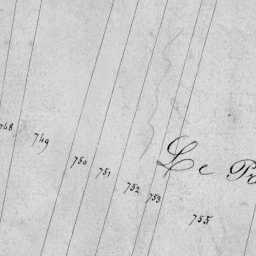 748
749
750
751
752
753
Le Pr
755